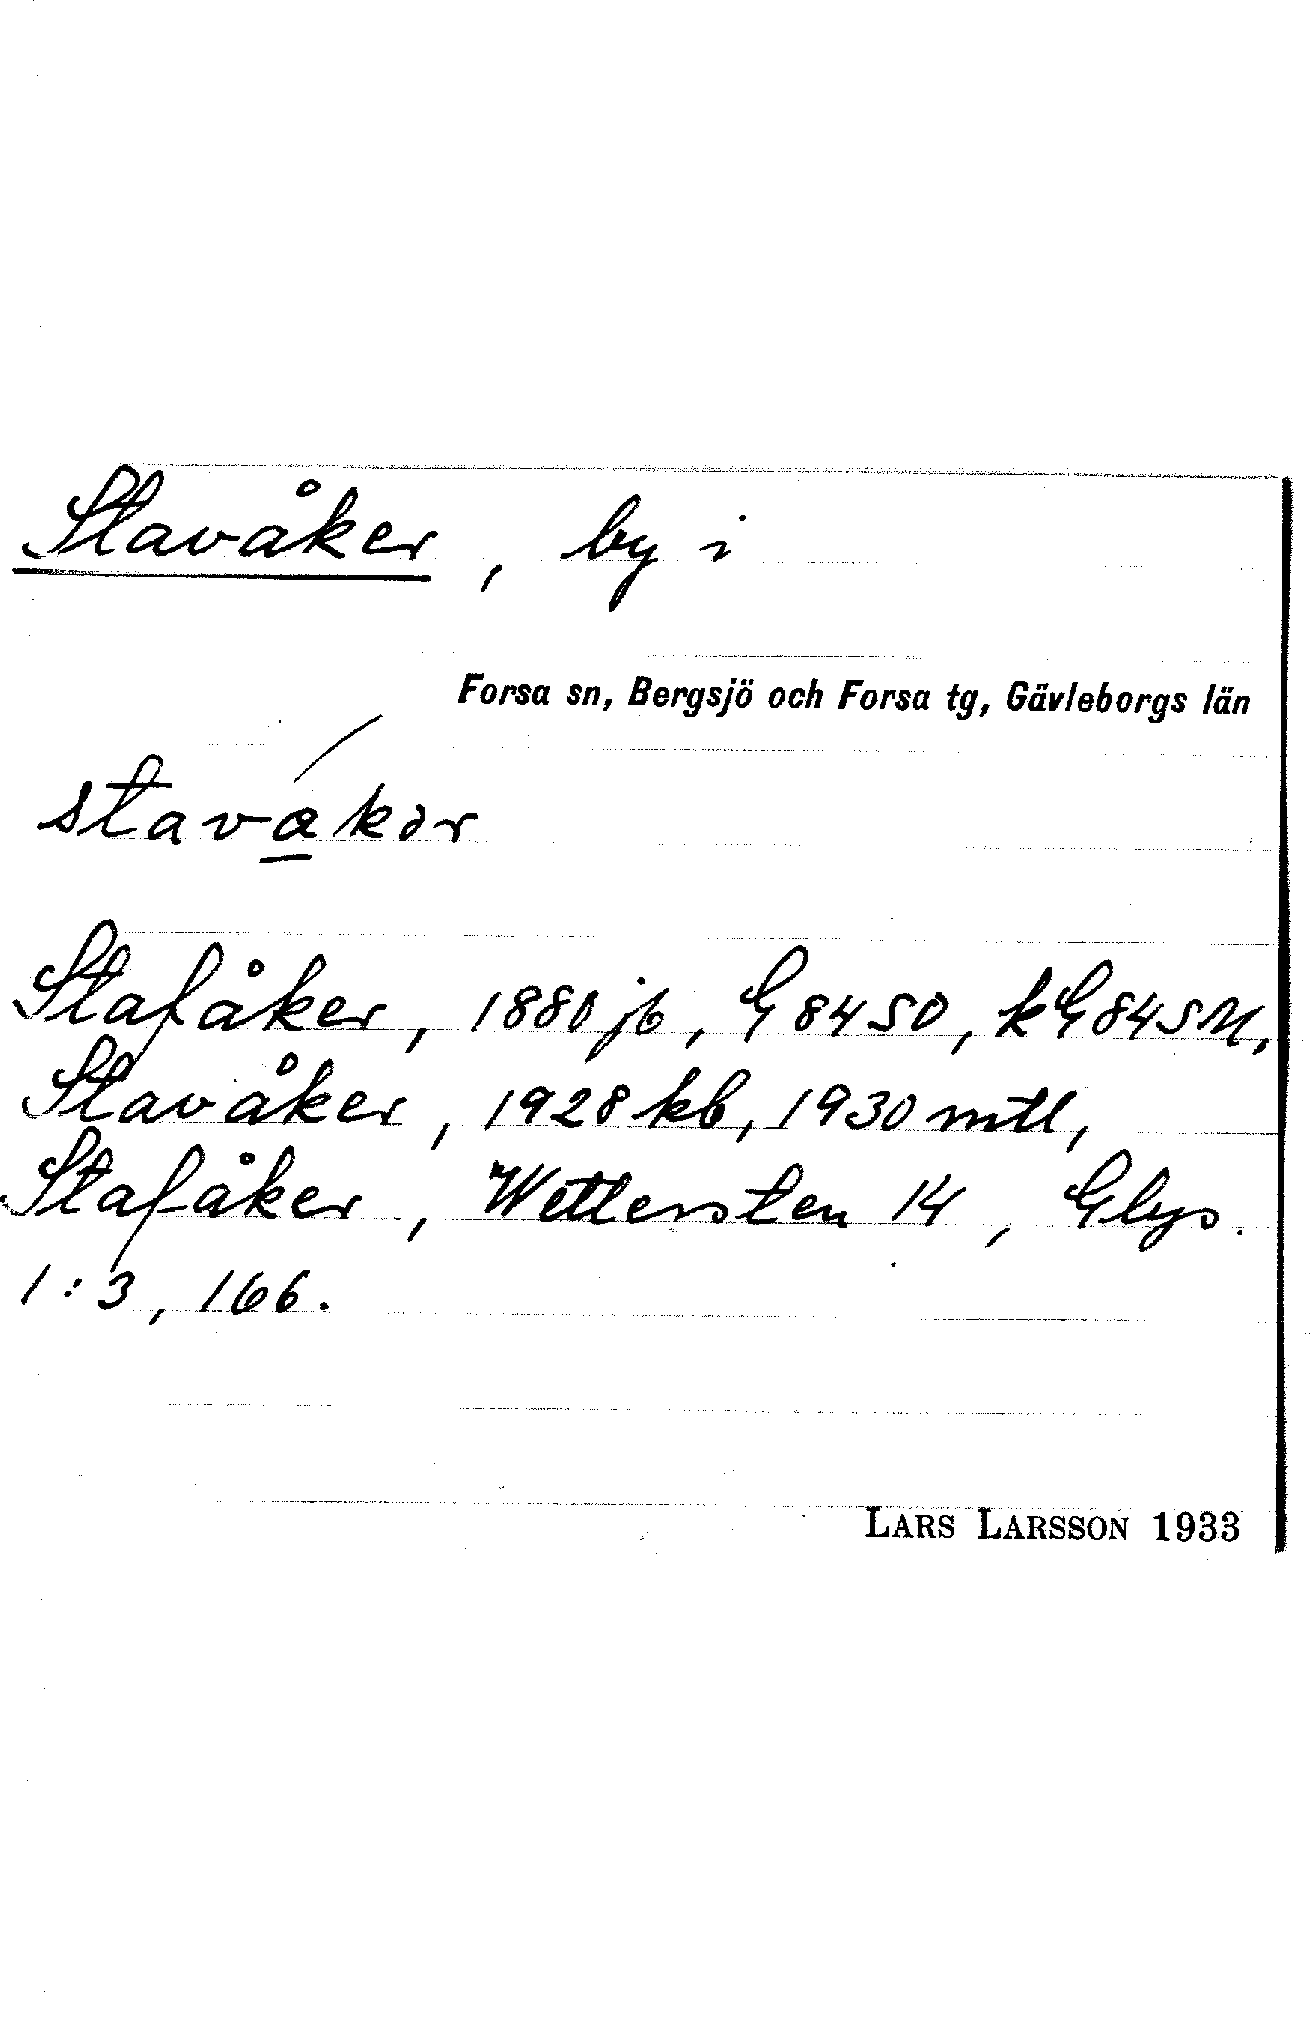 Stavåker, by i
Forsa sn, Bergsjö och Forsa tg, Gävleborgs län
stavά̱kər
Stafåker, 1880 jb, G 84 SO, kG 84 SM,
Stavåker, 1928 kb, 1930 mtl,
Stafåker, Wettersten 14, Glys.
1:3, 166.
LARS LARSSON 1933